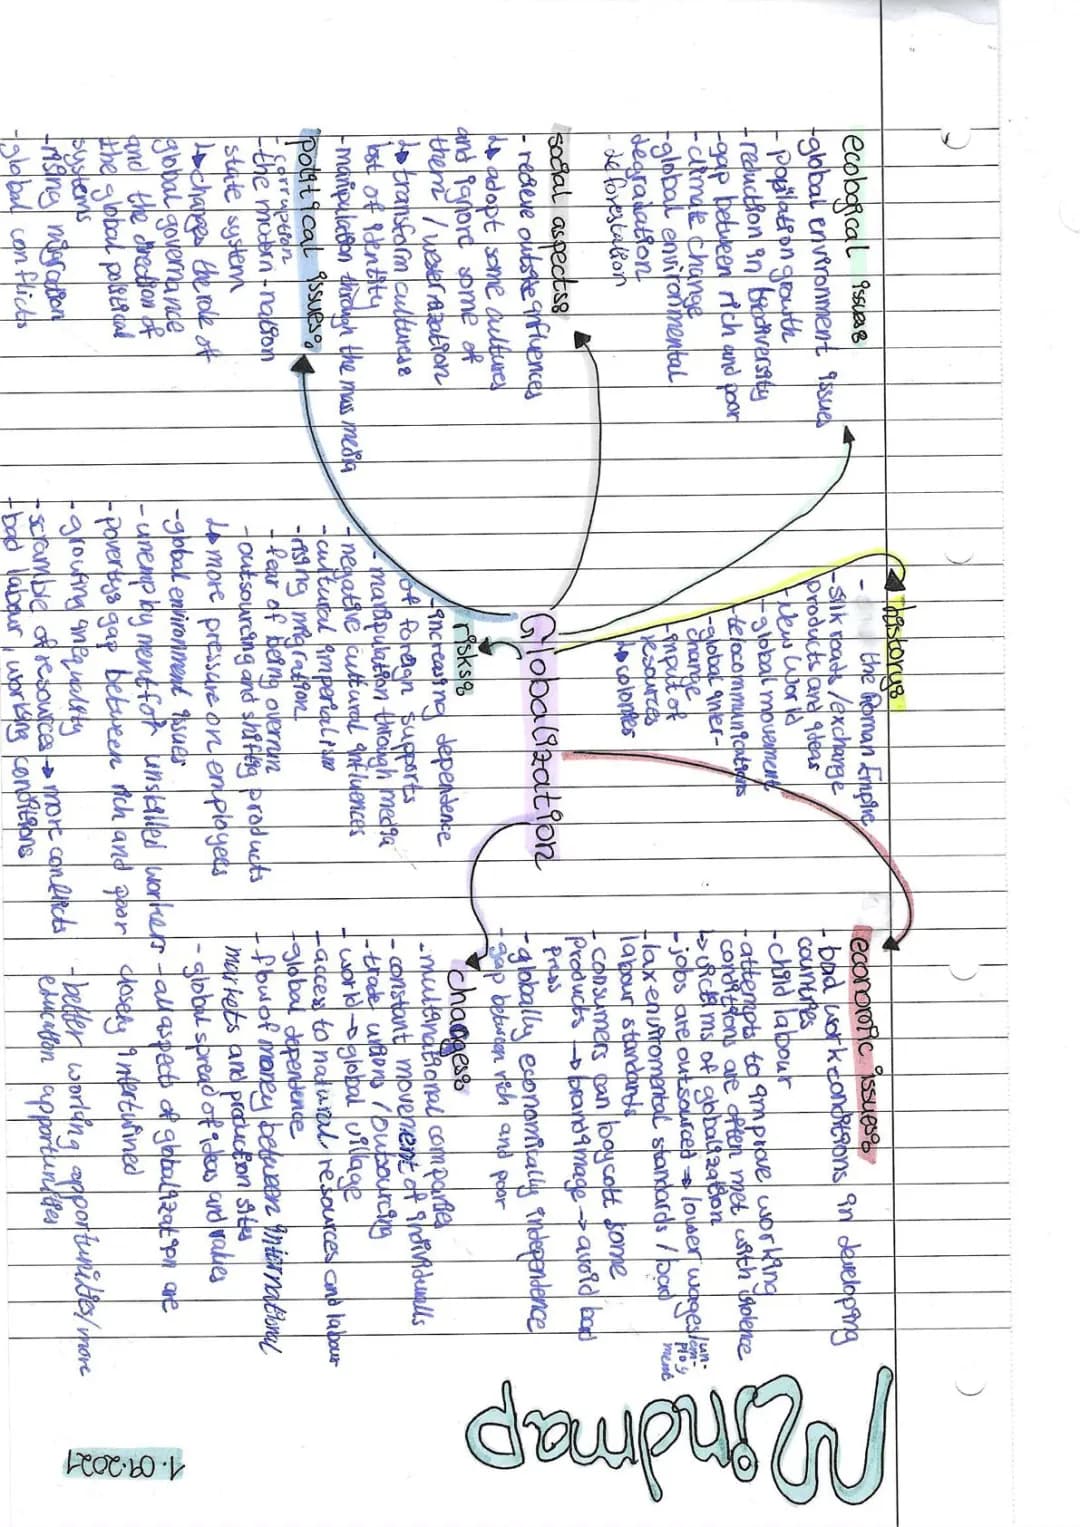 Mindmap
1.09.2021
Globalization
ecological issues
-global environment issues
- popilation growth
-reduction in biodiversity
-gap between rich and poor
-climate change
-global environmental
degradation
- deforestation
social aspects:
- recieve outside influences
↳ adopt some cultures
and ignore some of
them / westernization
↳ transform cultures
lost of identity
- manipulation through the mass media
political issues:
- corruption
- the mutorn-nation
state system
↳ changes the role of
global governance
and the direction of
the global political
systems
-rising migration
-global conflicts
history:
- the Roman Empire
-silk roads / exchange
products and ideas
-New World
-global movement
-telecommunications
-global inter-
change
-input of
resources
↳ colonies
risks:
-increasing dependence
of foreign supports
-manipulation through media
-negative cultural influences
-cultural imperialism
-rising migration
- fear of being overrun
-outsourcing and shifting products
↳ more pressure on employees
-global environment issues
-unemployment for unskilled workers
-poverty: gap between rich and poor
-growing inequality
-scramble of resources → more conflicts
+bad labour, working conditions
economic issues:
-bad work conditions in developing
countries
-child labour
-attempts to improve working
conditions are often met with violence
↳ victims of globalization
-jobs are outsourced → lower wages/un-
employ
ment
-lax enviromental standards / bad
labour standards
-consumers can boycott some
products → brand image → avoid bad
press
-globally economically independence
-gap between rich and poor
changes:
-multinational companies
-constant movement of individualls
-trade unions / outsourcing
-world → global village
-access to natural resources and labour
-global dependence
-flow of money between international
markets and production sites
-global spread of ideas and values
-all aspects of globalization are
closely intertwined
-better working opportunities/more
education opportunities